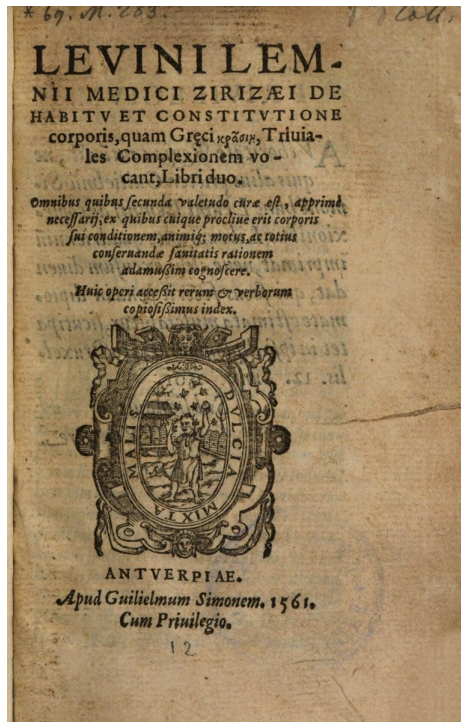 * 69. M. 263.
LEVINI LEM-
NII MEDICI ZIRIZÆI DE
HABITV ET CONSTITVTIONE
corporis, quam Gręci κρᾶσιμ, Triuia-
les Complexionem vo-
cant, Libri duo.
Omnibus quibus secunda valetudo curæ est, apprimè
necessarij, ex quibus cuique procliue erit corporis
sui conditionem, animiq; motus, ac totius
conseruandæ sanitatis rationem
adamußim cognoscere.
Huic operi acceßit rerum & verborum
copiosißimus index.
MALIS SVNT DVLCIA MIXTA
ANTVERPIAE.
Apud Guilielmum Simonem. 1561.
Cum Priuilegio.
12